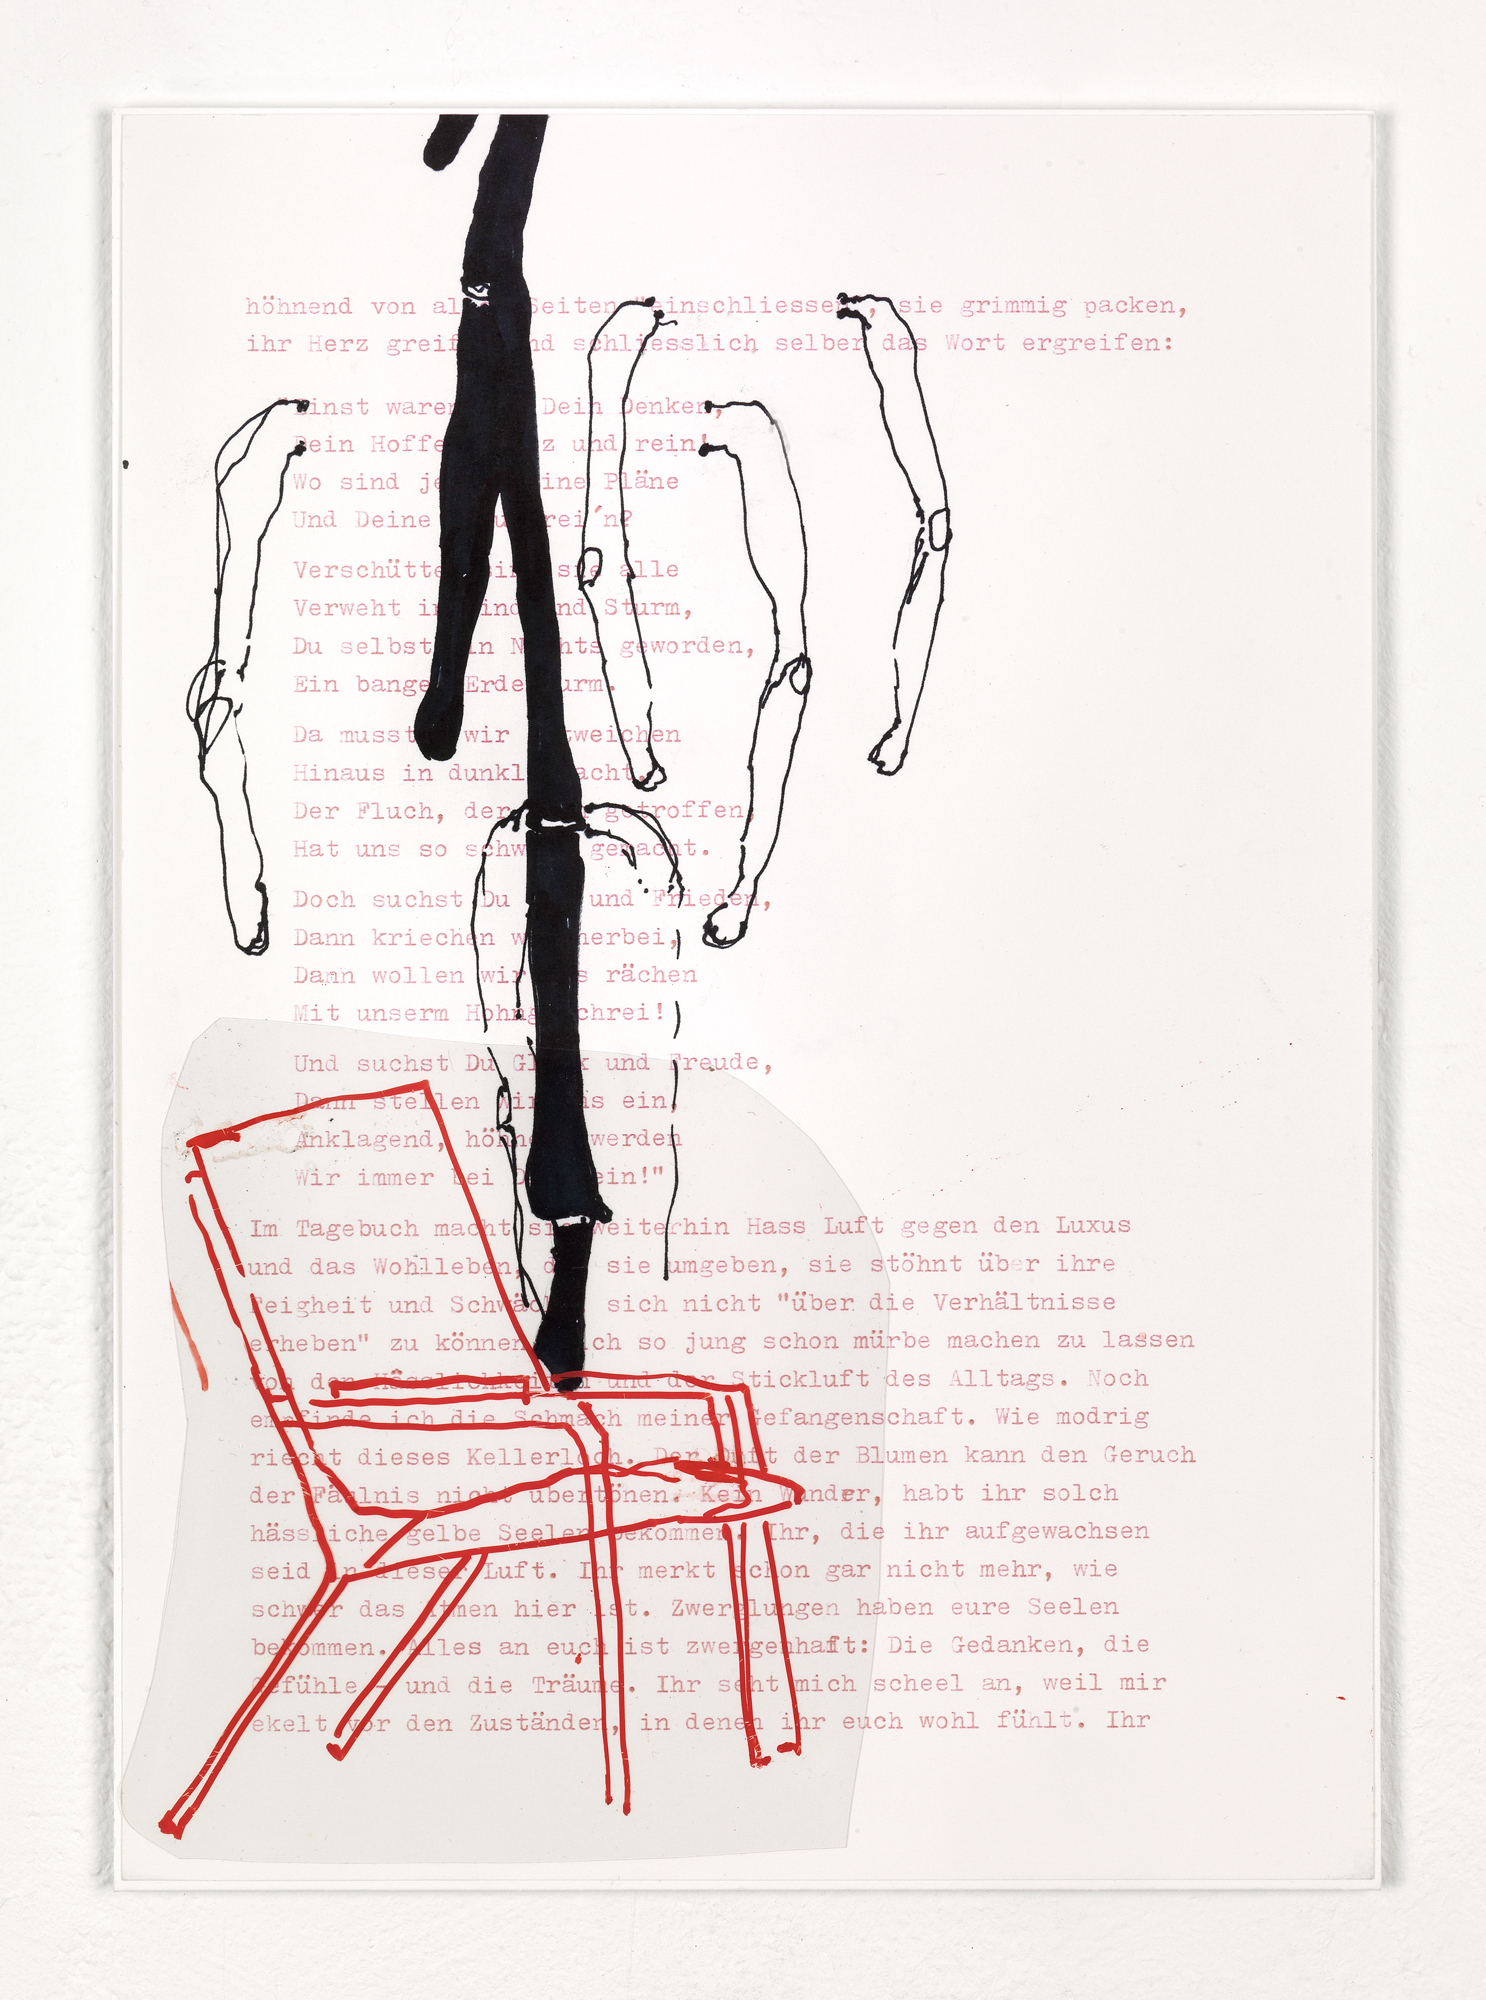 höhnend von allen Seiten "einschliessen", sie grimmig packen,
ihr Herz greifen und schliesslich selber das Wort ergreifen:
"Einst waren Dein Denken,
Dein Hoffen und rein!
Wo sind jetzt Deine Pläne
Und Deine Träumerei´n?
Verschüttet sind sie alle
Verweht in Wind und Sturm,
Du selbst ein Nichts geworden,
Ein banger Erdenwurm.
Da mussten wir entweichen
Hinaus in dunkle Nacht,
Der Fluch, der getroffen,
Hat uns so schwarz gemacht.
Doch suchst Du und Frieden,
Dann kriechen wir herbei,
Dann wollen wir uns rächen
Mit unserm Hohngeschrei!
Und suchst Du Glück und Freude,
Dann stellen wir uns ein,
Anklagend, höhnend werden
Wir immer bei Dir sein!"
Im Tagebuch macht sie weiterhin Hass Luft gegen den Luxus
und das Wohlleben, die sie umgeben, sie stöhnt über ihre
Feigheit und Schwäche, sich nicht "über die Verhältnisse
erheben" zu können, sich so jung schon mürbe machen zu lassen
von der Hässlichkeit und der Stickluft des Alltags. Noch
empfinde ich die Schmach meiner Gefangenschaft. Wie modrig
riecht dieses Kellerloch. Der Duft der Blumen kann den Geruch
der Fäulnis nicht übertönen. Kein Wunder, habt ihr solch
hässliche gelbe Seelen bekommen. Ihr, die ihr aufgewachsen
seid in dieser Luft. Ihr merkt schon gar nicht mehr, wie
schwer das Atmen hier ist. Zwerglungen haben eure Seelen
bekommen. Alles an euch ist zwergenhaft: Die Gedanken, die
Gefühle - und die Träume. Ihr seht mich scheel an, weil mir
ekelt vor den Zuständen, in denen ihr euch wohl fühlt. Ihr